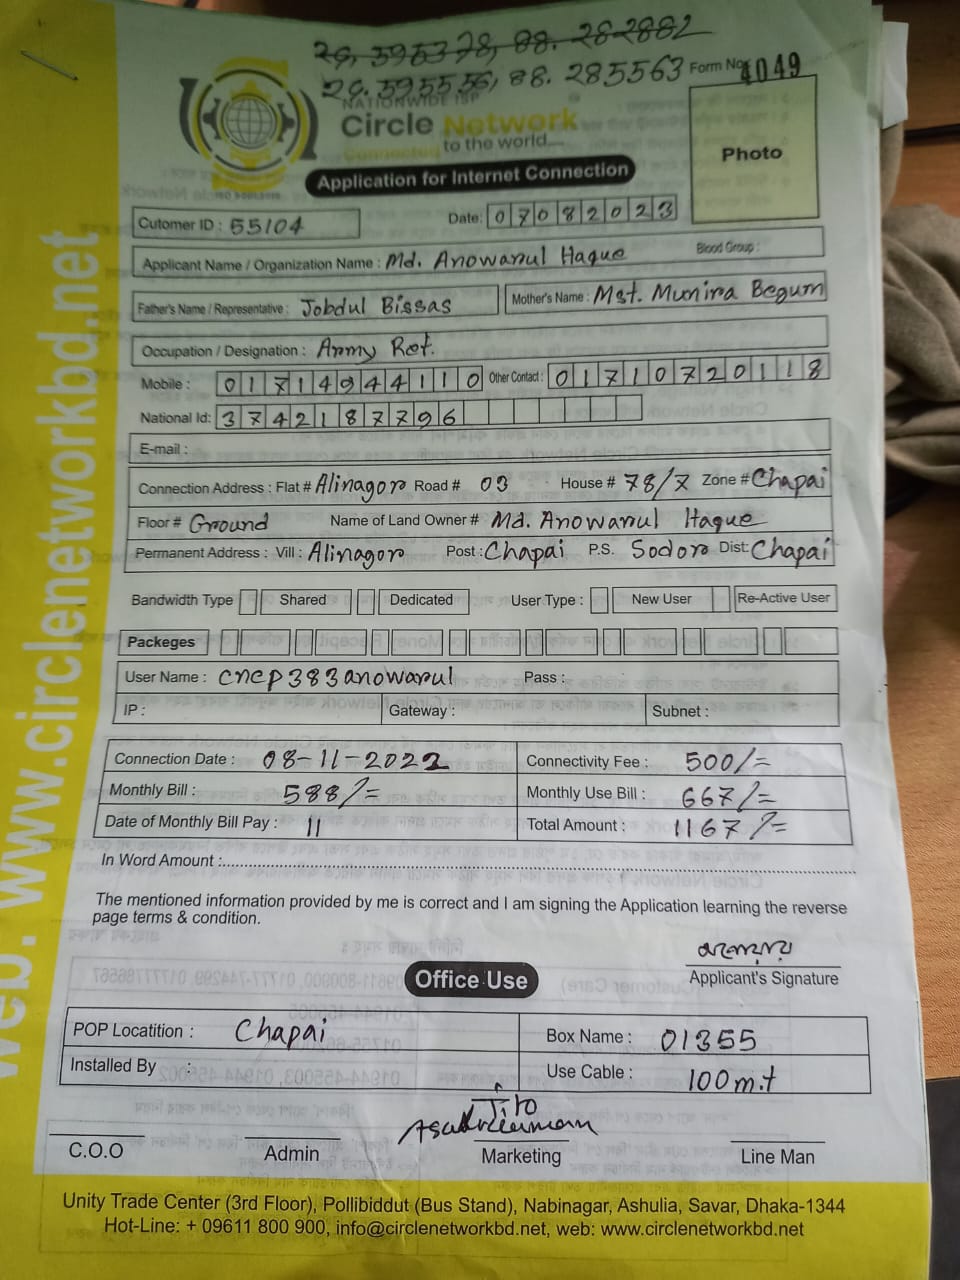 24.595378, 88.282882
24.595556, 88.285563 Form No. 4049
NATIONWIDE ISP
Circle Network
Connected to the world....
Photo
Application for Internet Connection
Cutomer ID : 55104 Date: 07082023
Applicant Name / Organization Name : Md. Anowarul Haque Blood Group :
Father's Name / Representative : Jobdul Bissas Mother's Name : Mst. Munira Begum
Occupation / Designation : Army Ret.
Mobile : 01714944110 Other Contact : 01710720118
National Id: 3742187796
E-mail :
Connection Address : Flat # Alinagor Road # 03 House # 78/7 Zone # Chapai
Floor # Ground Name of Land Owner # Md. Anowarul Haque
Permanent Address : Vill : Alinagor Post : Chapai P.S. Sodor Dist: Chapai
Bandwidth Type Shared Dedicated User Type : New User Re-Active User
Packeges
User Name : cncp383anowarul Pass :
IP : Gateway : Subnet :
Connection Date : 08-11-2022 Connectivity Fee : 500/=
Monthly Bill : 588/= Monthly Use Bill : 667/=
Date of Monthly Bill Pay : 11 Total Amount : 1167/=
In Word Amount :
The mentioned information provided by me is correct and I am signing the Application learning the reverse
page terms & condition.
Applicant's Signature
Office Use
POP Locatition : Chapai Box Name : 01355
Installed By : Use Cable : 100m.t
C.O.O Admin Marketing Line Man
Unity Trade Center (3rd Floor), Pollibiddut (Bus Stand), Nabinagar, Ashulia, Savar, Dhaka-1344
Hot-Line: + 09611 800 900, info@circlenetworkbd.net, web: www.circlenetworkbd.net
web: www.circlenetworkbd.net